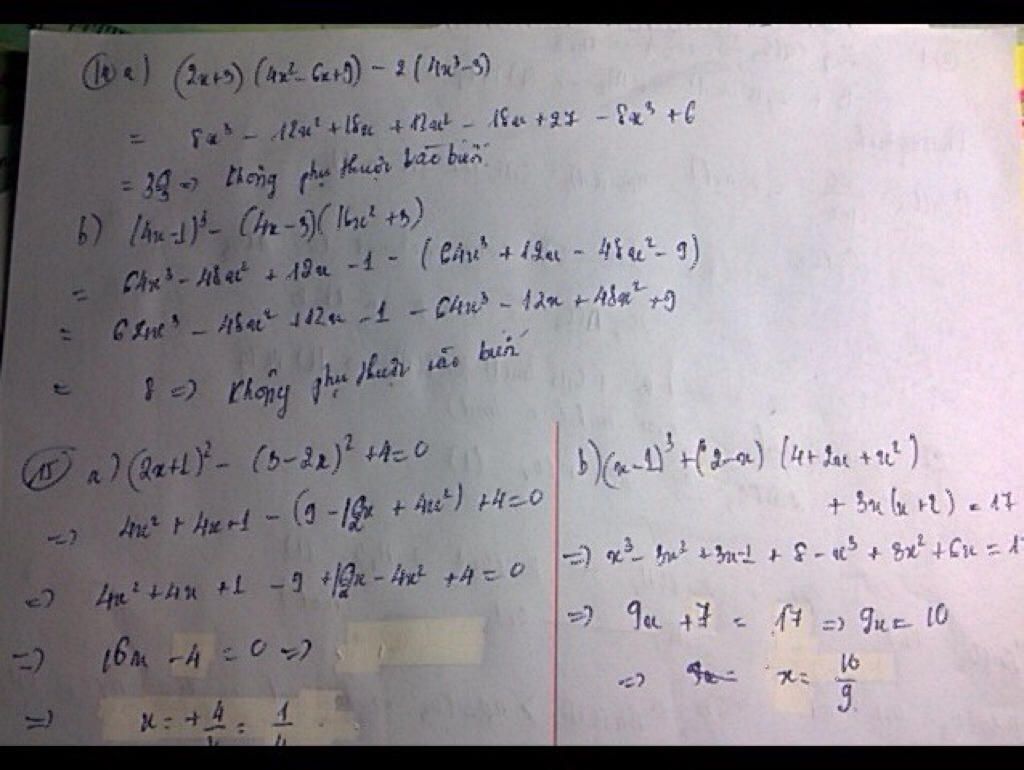 14 a) (2x+3) (4x² - 6x+9) - 2 (4x³-3)
= 8x³ - 12x² + 18x + 12x² - 18x + 27 - 8x³ + 6
= 33 => Không phụ thuộc vào biến
b) (4x-1)³ - (4x-3)(16x² +3)
= 64x³ - 48x² + 12x - 1 - (64x³ + 12x - 48x² - 9)
= 64x³ - 48x² + 12x - 1 - 64x³ - 12x + 48x² + 9
= 8 => Không phụ thuộc vào biến
15 a) (2x+1)² - (3-2x)² + 4 = 0
=> 4x² + 4x+1 - (9 - 12x + 4x²) + 4 = 0
=> 4x² + 4x + 1 - 9 + 12x - 4x² + 4 = 0
=> 16x - 4 = 0 =>
=> x = + 4 = 1
b) (x-1)³ + (2-x) (4+2x + x²)
+ 3x(x+2) = 17
=> x³ - 3x² + 3x-1 + 8 - x³ + 3x² + 6x = 17
=> 9x + 7 = 17 => 9x = 10
=> x = 10/9